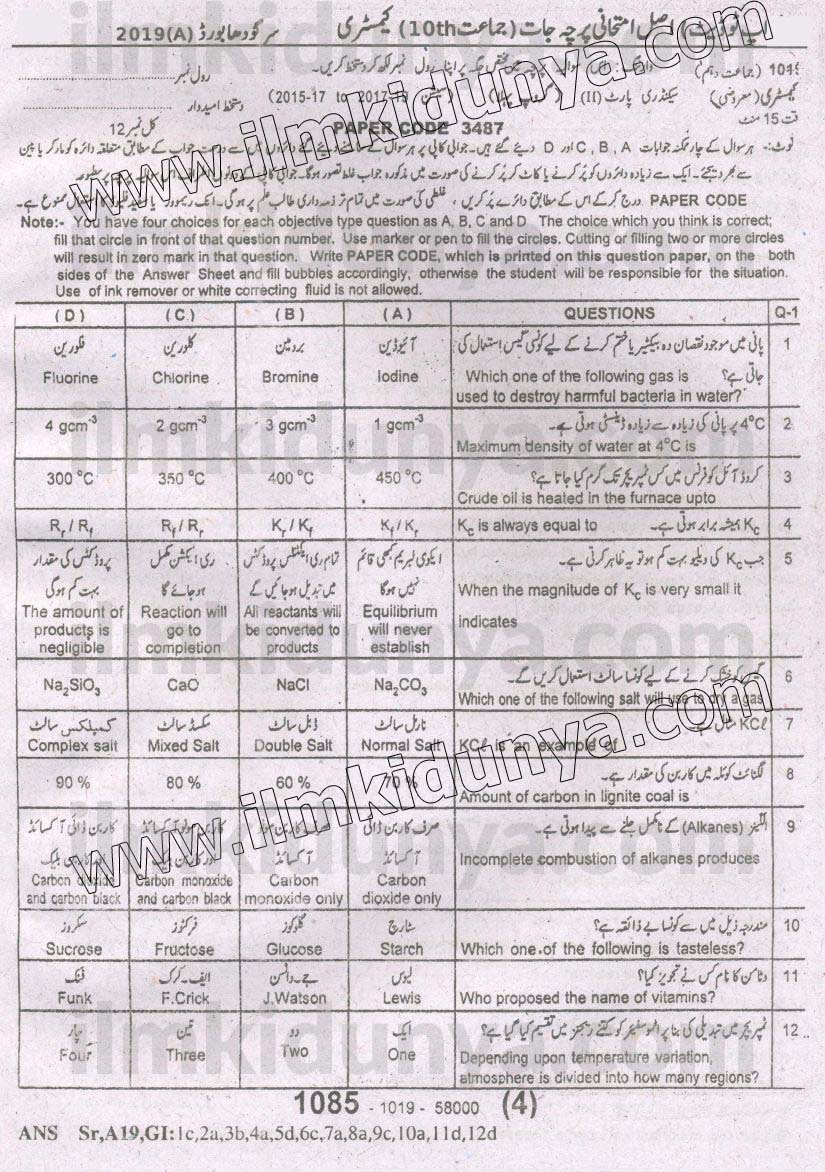 اپ ٹو ڈیٹ اصل امتحانی پرچہ جات (جماعت 10th) کیمسٹری سرگودھا بورڈ 2019 (A)
1019 (جماعت دہم) رول نمبر
کیمسٹری (معروضی) سیکنڈری پارٹ (II) (گروپ پہلا) سیشن (2015-17 to 2017-19) دستخط امیدوار
وقت 15 منٹ PAPER CODE 3487 کل نمبر 12
نوٹ:- ہر سوال کے چار ممکنہ جوابات C, B, A اور D دیئے گئے ہیں۔
PAPER CODE درج کر کے اس کے مطابق دائرے پُر کریں، غلطی کی صورت میں تمام تر ذمہ داری طالب علم پر ہوگی۔
Note:- You have four choices for each objective type question as A, B, C and D The choice which you think is correct;
fill that circle in front of that question number. Use marker or pen to fill the circles. Cutting or filling two or more circles
will result in zero mark in that question. Write PAPER CODE, which is printed on this question paper, on the both
sides of the Answer Sheet and fill bubbles accordingly, otherwise the student will be responsible for the situation.
Use of ink remover or white correcting fluid is not allowed.
(D) (C) (B) (A) QUESTIONS Q-1
فلورین کلورین برومین آئیوڈین پانی میں موجود نقصان دہ بیکٹیریا ختم کرنے کے لیے کونسی گیس استعمال کی 1
Fluorine Chlorine Bromine Iodine Which one of the following gas is جاتی ہے؟
used to destroy harmful bacteria in water?
4 gcm⁻³ 2 gcm⁻³ 3 gcm⁻³ 1 gcm⁻³ 4°C پر پانی کی زیادہ سے زیادہ ڈینسٹی ہوتی ہے۔ 2
Maximum density of water at 4°C is
300 °C 350 °C 400 °C 450 °C کروڈ آئل کو فرنس میں کس ٹمپریچر تک گرم کیا جاتا ہے؟ 3
Crude oil is heated in the furnace upto
Rr / Rf Rf / Rr Kr / Kf Kf / Kr Kc is always equal to Kc ہمیشہ برابر ہوتی ہے۔ 4
پروڈکٹس کی مقدار ری ایکشن مکمل تمام ری ایکٹنٹس پروڈکٹس ایکوی لبریم کبھی قائم جب Kc کی ویلیو بہت کم ہو تو یہ ظاہر کرتی ہے۔ 5
بہت کم ہوگی ہو جائے گا میں تبدیل ہو جائیں گے نہیں ہوگا When the magnitude of Kc is very small it
The amount of Reaction will All reactants will Equilibrium indicates
products is go to be converted to will never
negligible completion products establish
Na₂SiO₃ CaO NaCl Na₂CO₃ گیس کو خشک کرنے کے لیے کونسا سالٹ استعمال کریں گے۔ 6
Which one of the following salt will use to dry a gas
کمپلیکس سالٹ مکسڈ سالٹ ڈبل سالٹ نارمل سالٹ KCℓ مثال ہے 7
Complex salt Mixed Salt Double Salt Normal Salt KCℓ is an example of
90 % 80 % 60 % 70 % لگنائٹ کوئلہ میں کاربن کی مقدار ہے۔ 8
Amount of carbon in lignite coal is
کاربن ڈائی آکسائڈ کاربن مونو آکسائڈ صرف کاربن مونو صرف کاربن ڈائی الکینز (Alkanes) کے نامکمل جلنے سے پیدا ہوتی ہے۔ 9
آکسائڈ آکسائڈ Incomplete combustion of alkanes produces
Carbon dioxide Carbon monoxide Carbon Carbon
and carbon black and carbon black monoxide only dioxide only
سکروز فرکٹوز گلوکوز سٹارچ مندرجہ ذیل میں سے کونسا بے ذائقہ ہے؟ 10
Sucrose Fructose Glucose Starch Which one of the following is tasteless?
فنک ایف۔کرک جے۔واٹسن لیوس وٹامن کا نام کس نے تجویز کیا؟ 11
Funk F.Crick J.Watson Lewis Who proposed the name of vitamins?
چار تین دو ایک ٹمپریچر میں تبدیلی کی بنا پر اٹموسفیئر کو کتنے ریجنز میں تقسیم کیا گیا ہے؟ 12
Four Three Two One Depending upon temperature variation,
atmosphere is divided into how many regions?
1085 - 1019 - 58000 (4)
ANS Sr,A19,GI:1c,2a,3b,4a,5d,6c,7a,8a,9c,10a,11d,12d
www.ilmkidunya.com
www.ilmkidunya.com
ilmkidunya.com
ilmkidunya.com
ilmkidunya.com
ilmkidunya.com